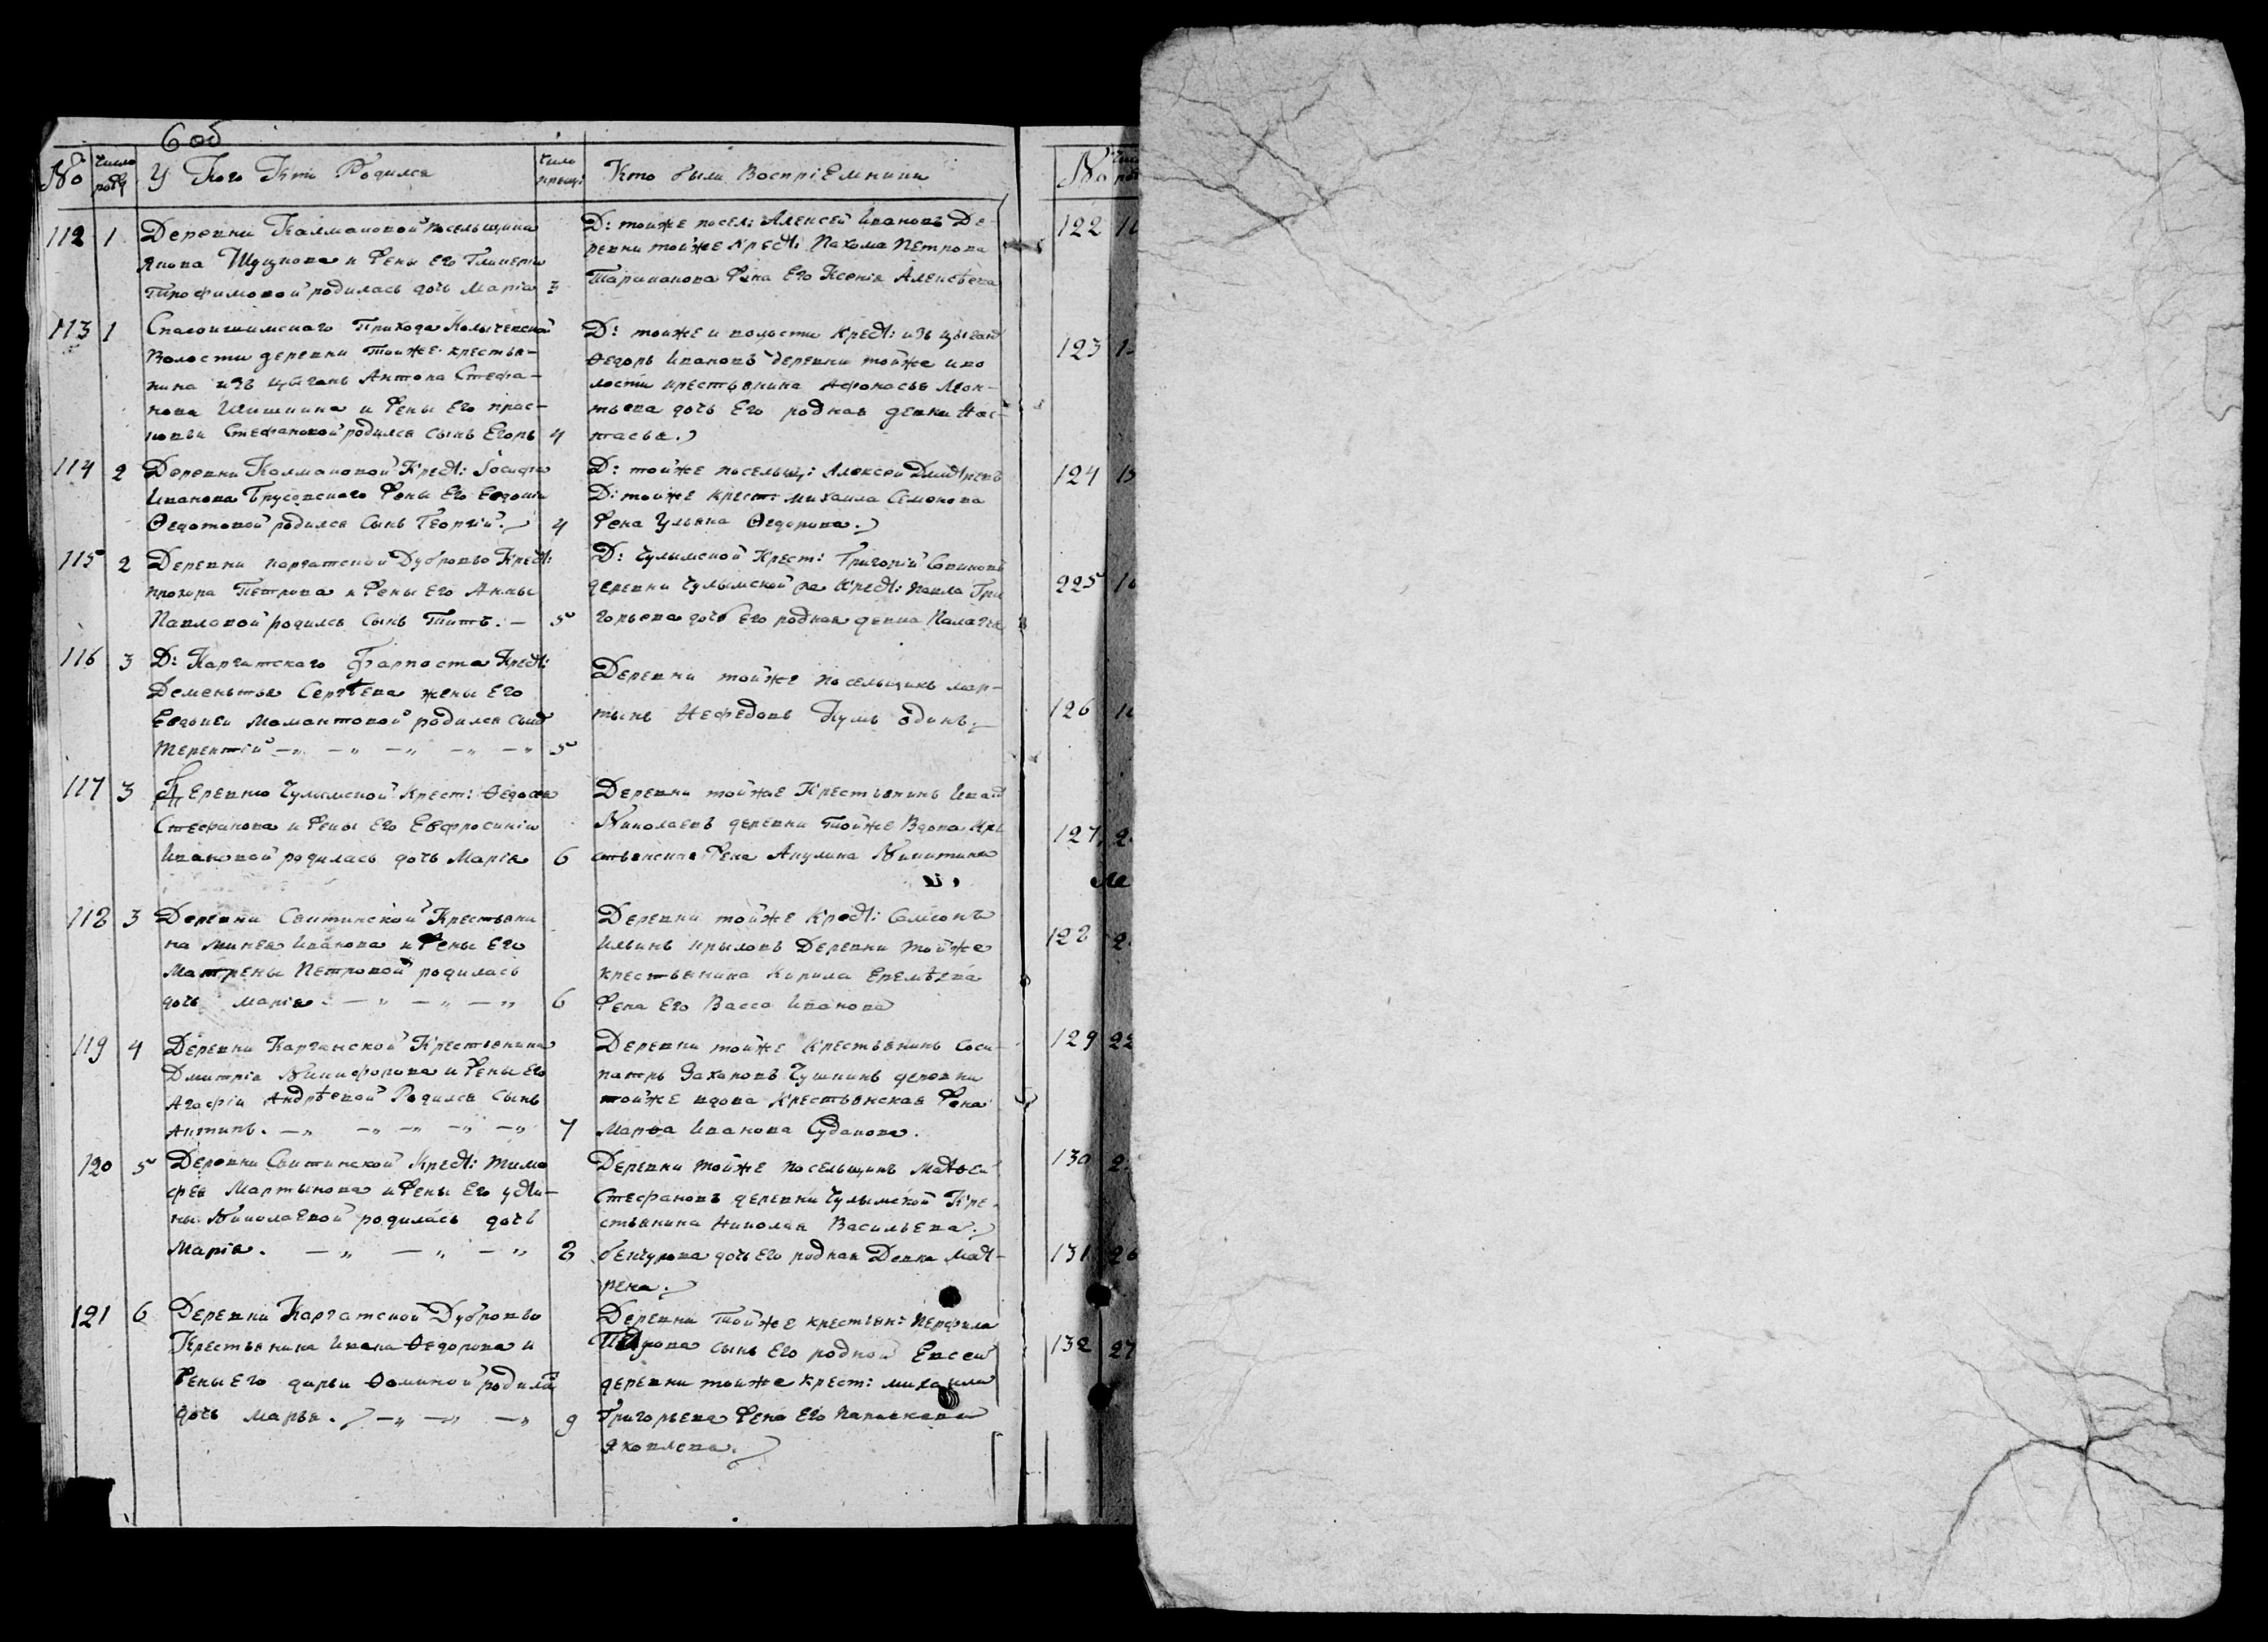 6 об
№ число рожд У Кого Кто Родился число крещ: Кто были ВоспріЕмники
112 1 Деревни Калмаковой посельщика
Якова Шущкова и Жены Его Гликеріи
Трофимовой родилась дочь Маріа 3
Д: тойже посел: Алексей Ивановъ Де-
ревни тойже Крест: Пахома Петрова
Тараканова Жена Его Ксенія Алексѣева
113 1 Спасоишимскаго Прихода Колычевской
Волости деревни тойже крестья-
нина изъ цыганъ Антона Стефа-
нова Шишкина и Жены Его прас-
ковьи Стефановой родился сынъ Егоръ 4
Д: тойже и волости Крест: изъ цыганъ
Ѳедоръ Ивановъ деревни тойже и во
лости крестьянина Афонасья Леон-
тьева дочь Его родная девка Нас-
тасья.
114 2 Деревни Калмаковой Крест: Іосифа
Иванова Брусовскаго Жены Его Евдокіи
Ѳедотовой родился сынъ Георгій. 4
Д: тойже посельщ: Алексей Дмитревъ
Д: тойже крест: михаила Семонова
Жена Ульяна Ѳедорова.
115 2 Деревни каргатской Дубровы Крест:
прохора Петрова и Жены Его Анны
Павловой родился Сынъ Титъ. — 5
Д: Чулымской Крест: Григорій Савиновъ
деревни Чулымской же Крест: павла Гри
горьева дочь Его родная девка Палагея
116 3 Д: Каргатскаго Фарпоста Крест:
Дементья Сергѣева жены Его
Евдокеи Мамонтовой родился сынъ
Терентій — „ — „ — „ — „ — „ 5
Деревни тойже посельщикъ мар-
тынъ Нефедовъ Кумъ одинъ.
117 3 Деревню Чулымской Крест: Ѳедосея
Стефанова и Жены Его Евфросиніи
Ивановой родилась дочь Маріа 6
Деревни тойже Крестьянинъ Иванъ
Николаевъ деревни тойже Вдова Кре
стьянская Жена Акулина Никитина
118 3 Деревни Свитинской Крестьяни
на Минея Иванова и Жены Его
Матрены Петровой родилась
дочь маріа. — „ — „ — „ 6
Деревни тойже Крест: Самсонъ
Ильинъ крыловъ Деревни тойже
крестьянина Кирила Еремѣева
Жена Его Васса Иванова
119 4 Деревни Карганской Крестьянина
Дмитріа Никифорова и Жены Его
Агафіи Андрѣевой Родился Сынъ
Антипъ. — „ — „ — „ — „ — „ 7
Деревни тойже Крестьянинъ Соси-
патръ Захаровъ Чушкинъ деревни
тойже вдова Крестьянская Жена
Марѳа Иванова Судакова.
120 5 Деревни Свитинской Крест: Тимо
фея Мартынова и Жены Его усти-
ны Николаевой родилась дочь
Маріа. — „ — „ — „ 8
Деревни тойже посельщикъ Матвей
Стефановъ деревни Чулымской Кре-
стьянина Николая Васильева
бенчурова дочь Его родная Девка Мат-
рена.
121 6 Деревни Каргатской Дубровы
Крестьянина Ивана Ѳедорова и
Жены Его дарьи Ѳоминой родилась
дочь марья. — „ — „ — „ 9
Деревни тойже крестьян: Перфила
Петрова сынъ Его родной Евсей
деревни тойже Крест: михаила
Григорьева Жена Его
Яковлева.
№
122
123
124
225
126
127
128
129 22
130
131 26
132 27